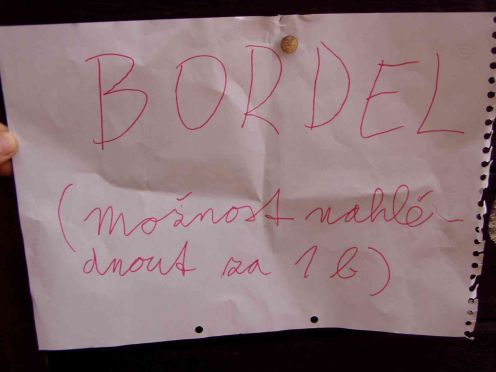 BORDEL
(možnost nahlé-
dnout za 1 b)